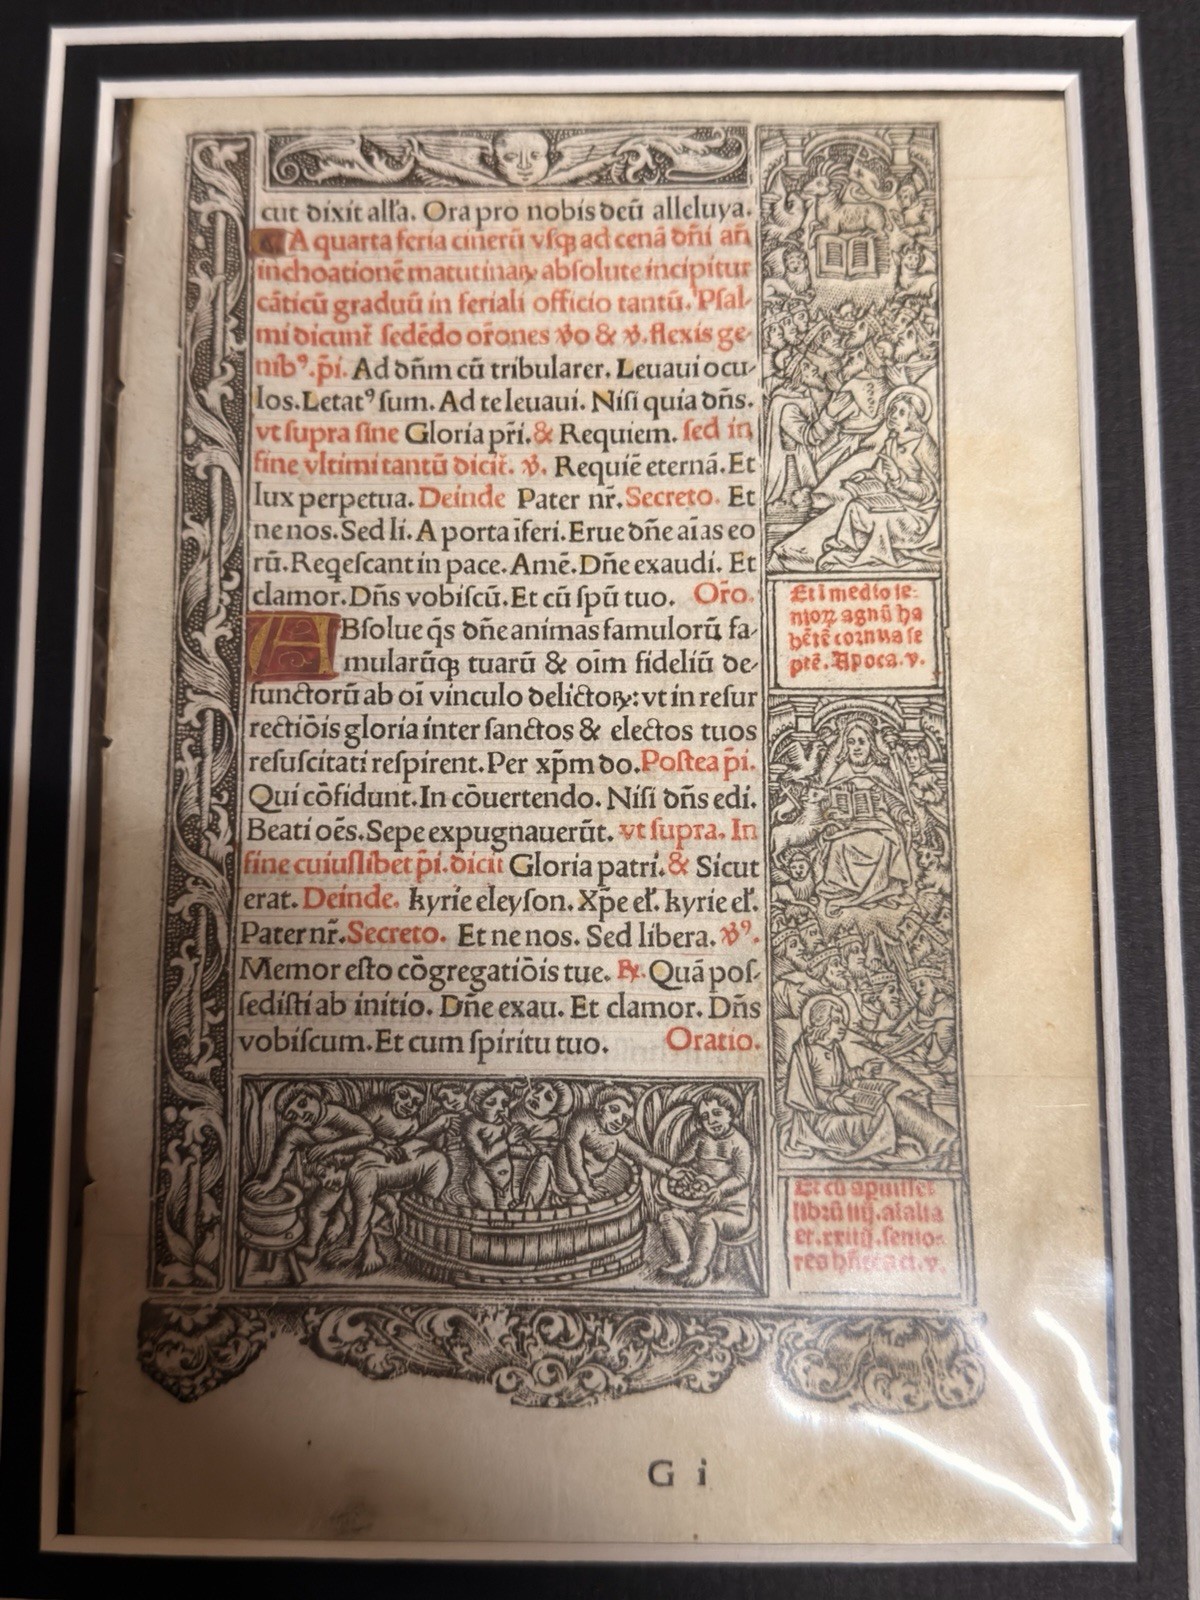 cut dixit all'a. Ora pro nobis deū alleluya.
A quarta feria cinerū vsq; ad cenā dñi añ
inchoationē matutinaꝝ absolute incipitur
cāticū graduū in feriali officio tantū. Psal-
mi dicunt̄ sedēdo or̄ones ꝟo & ꝟ. flexis ge-
nibꝰ. p̄i. Ad dñm cū tribularer. Leuaui ocu-
los. Letatꝰ sum. Ad te leuaui. Nisi quia dñs.
vt supra sine Gloria pr̄i. & Requiem. sed in
fine vltimi tantū dicit̄. ꝟ. Requiē eternā. Et
lux perpetua. Deinde Pater nr̄. Secreto. Et
ne nos. Sed li. A porta īferi. Erue dñe aīas eo
rū. Reqescant in pace. Amē. Dñe exaudi. Et
clamor. Dñs vobiscū. Et cū spū tuo. Or̄o.
ABsolue q̄s dñe animas famulorū fa-
mularūq; tuarū & oīm fideliū de-
functorū ab oī vinculo delictoꝝ: vt in resur
rectiōis gloria inter sanctos & electos tuos
resuscitati respirent. Per xp̄m do. Postea p̄i.
Qui cōfidunt. In cōuertendo. Nisi dñs edi.
Beati oēs. Sepe expugnauerūt. vt supra. In
fine cuiuslibet p̄i. dicit̄ Gloria patri. & Sicut
erat. Deinde. kyrie eleyson. Xp̄e el'. kyrie el'.
Pater nr̄. Secreto. Et ne nos. Sed libera. ꝟꝰ.
Memor esto cōgregatiōis tue. ℟. Quā pos-
sedisti ab initio. Dñe exau. Et clamor. Dñs
vobiscum. Et cum spiritu tuo. Oratio.
Et ī medio se-
nioꝝ agnū ha
bētē cornua se
ptē. Apoca. v.
Et cū aperuisset
librū iiij. aīalia
et. xxiiij. senio-
res
G i